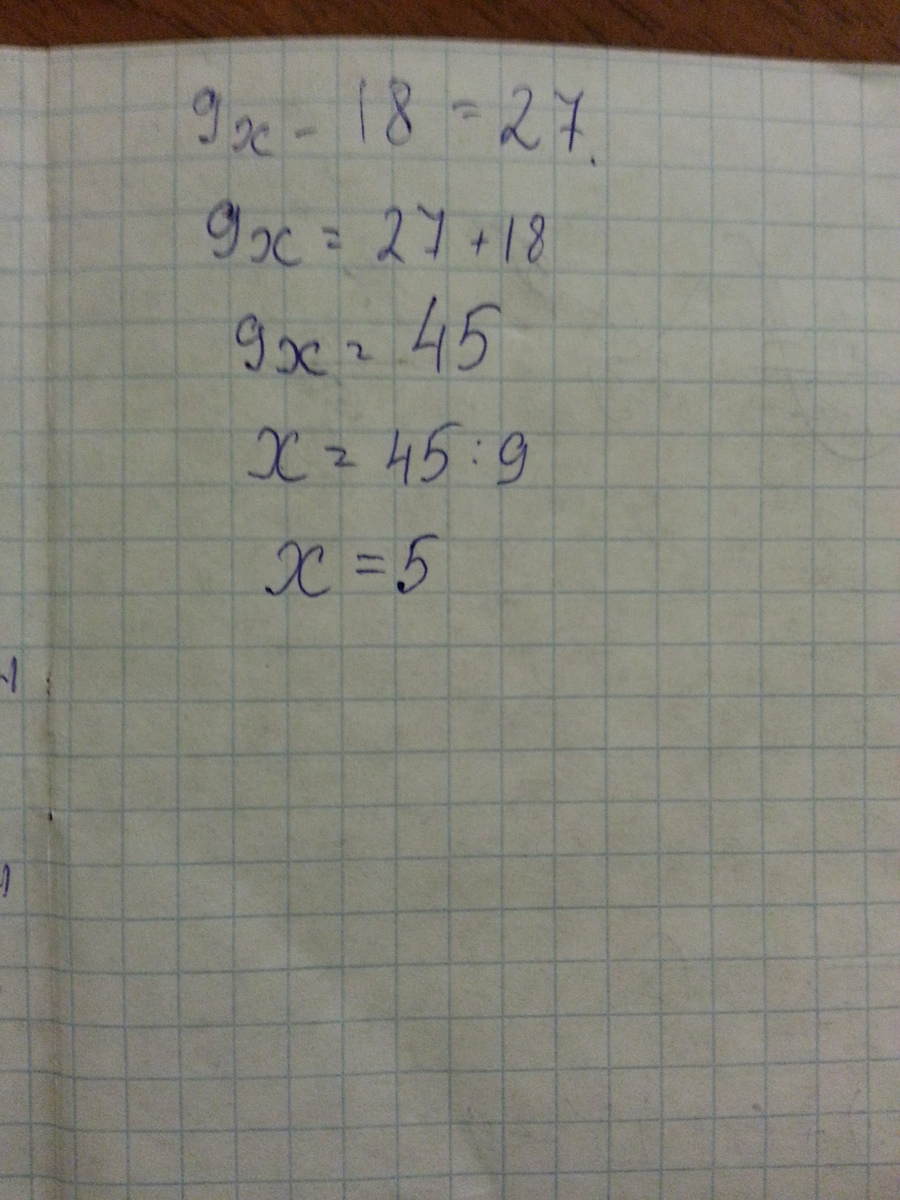 9x - 18 = 27.
9x = 27 + 18
9x = 45
x = 45 : 9
x = 5